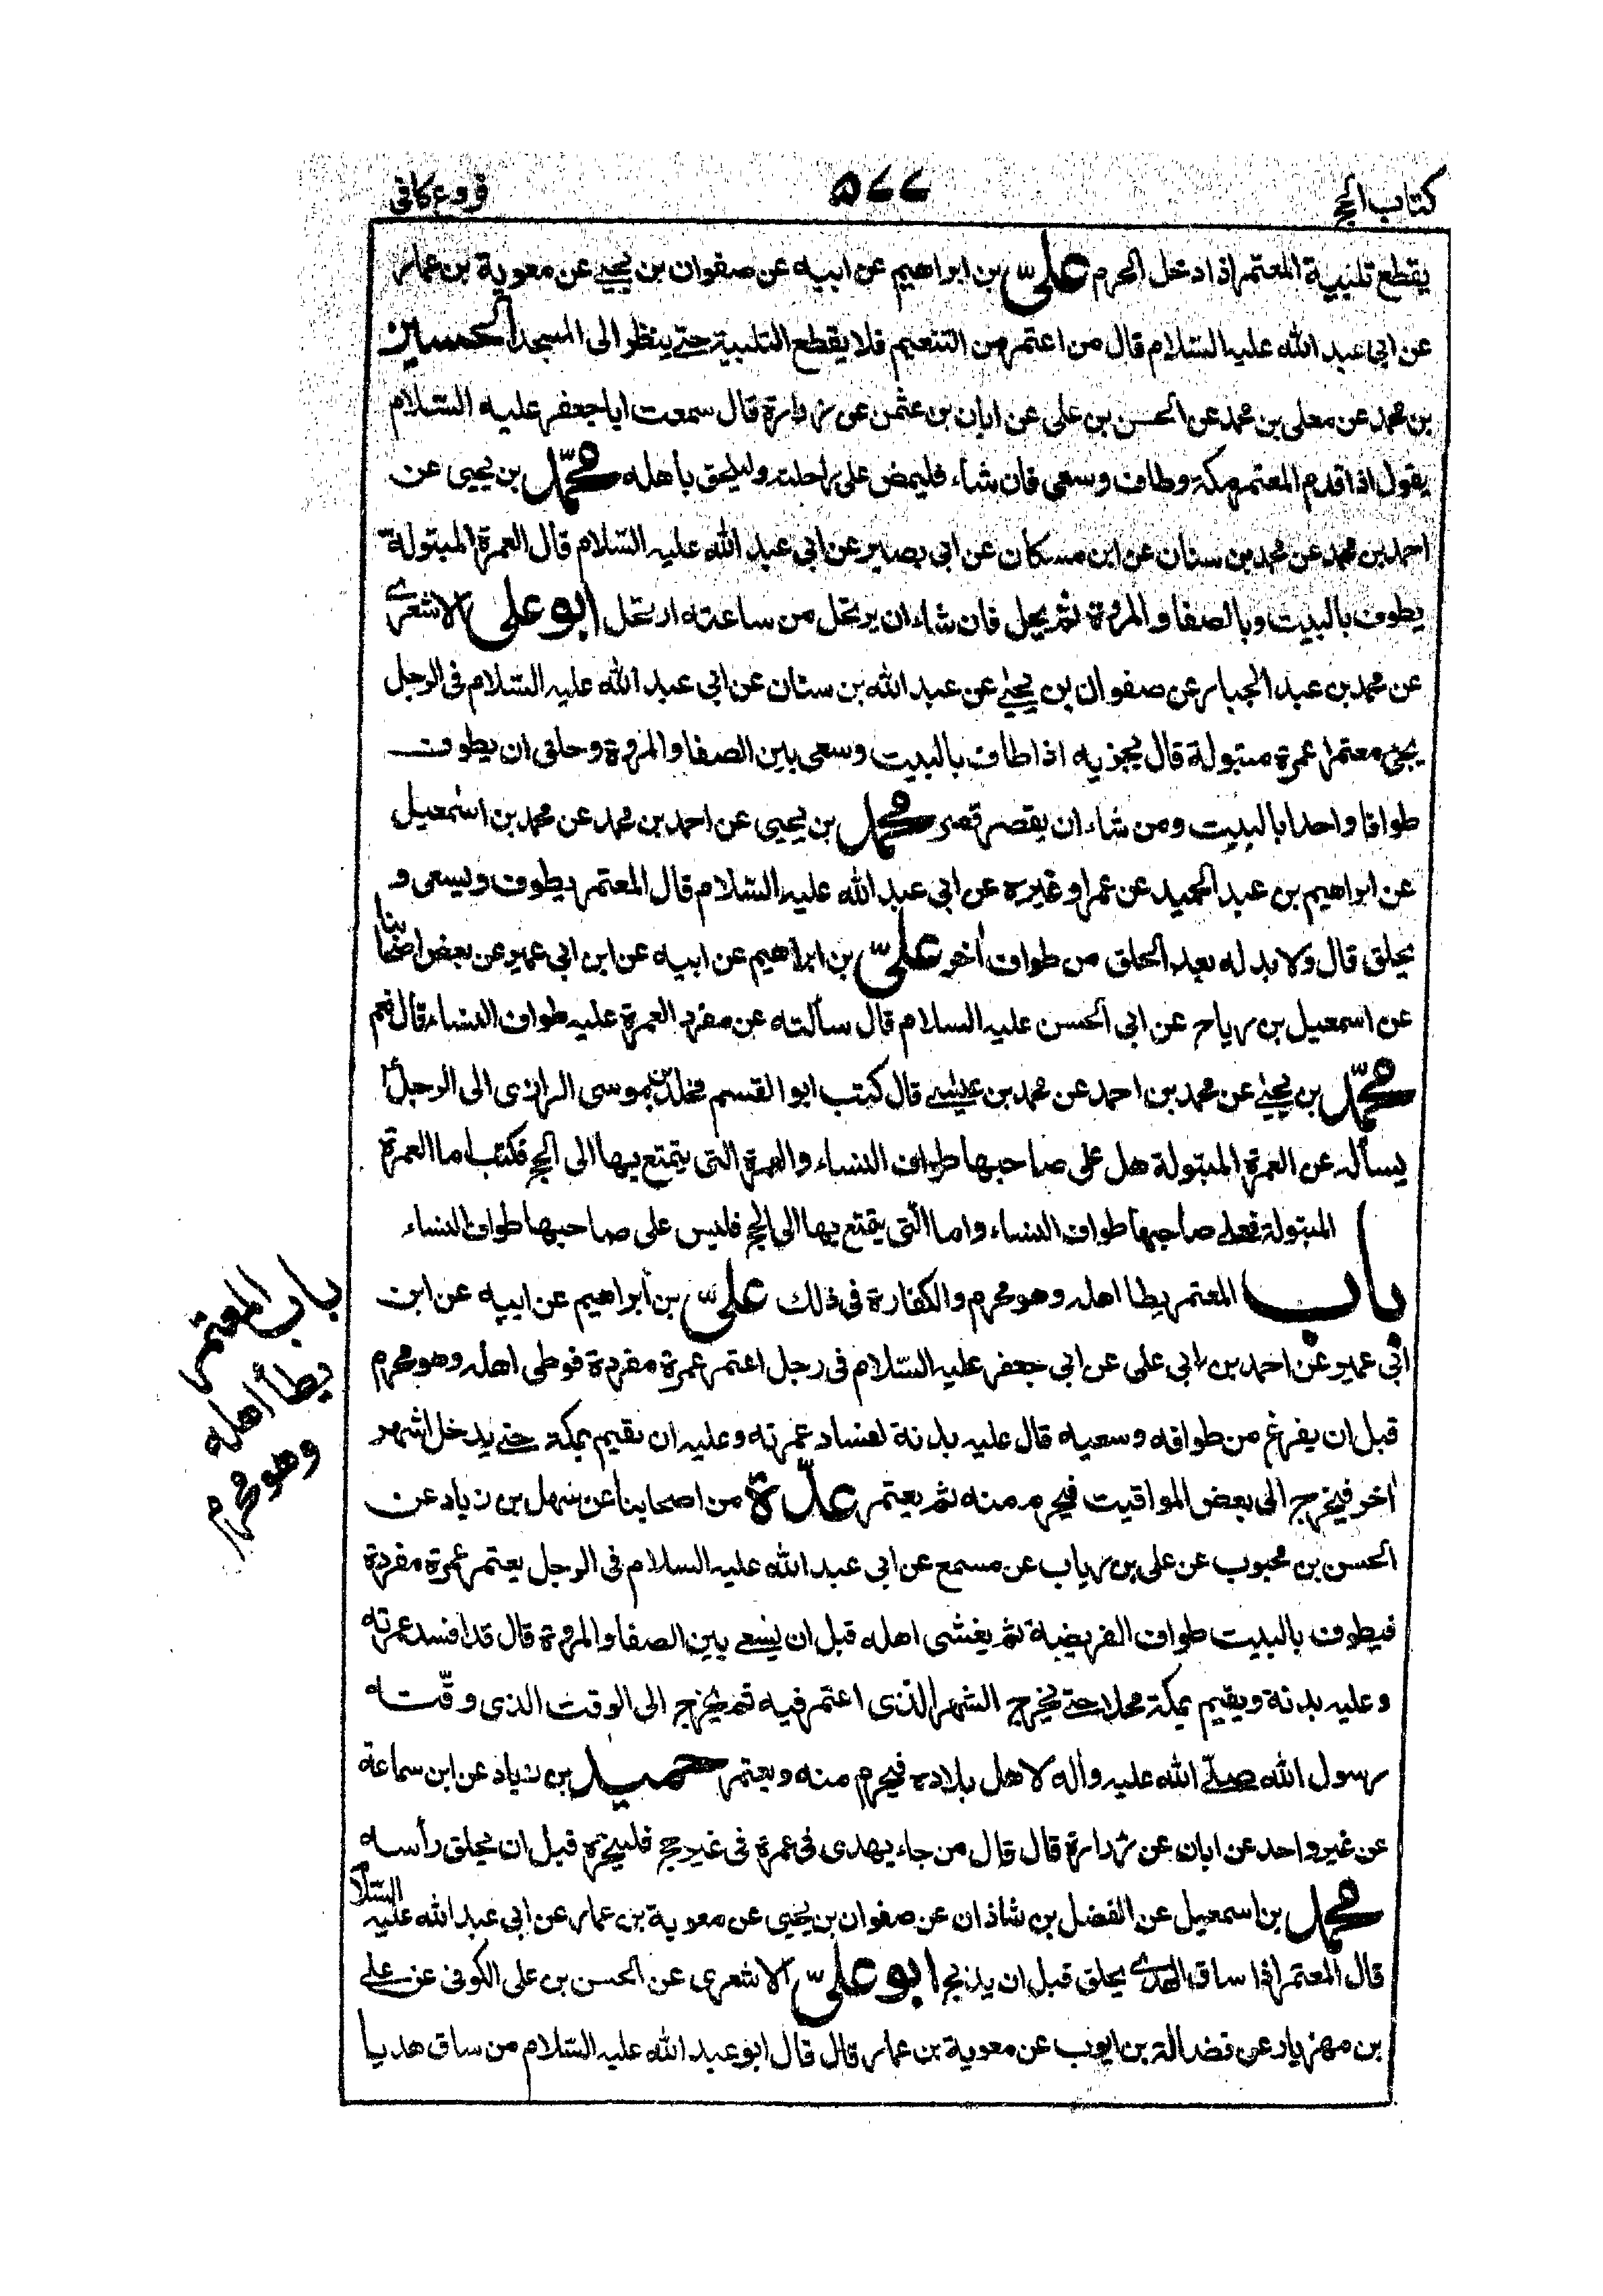 كتاب الحج
٥٤٤
فروع كافى
يقطع تلبية المعتمر اذا دخل الحرم علىّ بن ابراهيم عن ابيه عن صفوان بن يحيى عن معوية بن عمار
عن ابى عبد الله عليه السّلام قال من اعتمر من التنعيم فلا يقطع التلبية حتى ينظر الى المسجد الحسين
بن محمد عن معلى بن محمد عن الحسن بن على عن ابان بن عثمن عن زرارة قال سمعت ابا جعفر عليه السّلام
يقول اذا قدم المعتمر مكة وطاف وسعى فان شاء فليمض على راحلته وليلحق باهله محمّد بن يحيى عن
احمد بن محمد عن محمد بن سنان عن ابن مسكان عن ابى بصير عن ابى عبد الله عليه السّلام قال العمرة المبتولة
يطوف بالبيت وبالصفا والمروة ثم يحل فان شاء ان يرتحل من ساعته ارتحل ابو على الاشعرى
عن محمد بن عبد الجبار عن صفوان بن يحيى عن عبد الله بن سنان عن ابى عبد الله عليه السّلام فى الرجل
يجئ معتمرا عمرة مبتولة قال يجزيه اذا طاف بالبيت وسعى بين الصفا والمروة وحلق ان يطوف
طوافا واحدا بالبيت ومن شاء ان يقصر قصر محمد بن يحيى عن احمد بن محمد عن محمد بن اسمعيل
عن ابراهيم بن عبد الحميد عن عمر او غيره عن ابى عبد الله عليه السّلام قال المعتمر يطوف ويسعى و
يحلق قال ولا بد له بعد الحلق من طواف اخر علىّ بن ابراهيم عن ابيه عن ابن ابى عمير عن بعض اصحابنا
عن اسمعيل بن رياح عن ابى الحسن عليه السلام قال سألته عن مفرد العمرة عليه طواف النساء قال نعم
محمّد بن يحيى عن محمد بن احمد عن محمد بن عيسى قال كتب ابو القسم مخلد بن موسى الرازى الى الرجل
يسأله عن العمرة المبتولة هل على صاحبها طواف النساء والعمرة التى يتمتع بها الى الحج فكتب اما العمرة
المبتولة فعلى صاحبها طواف النساء واما التى يتمتع بها الى الحج فليس على صاحبها طواف النساء
باب المعتمر يطا اهله وهو محرم والكفارة فى ذلك علىّ بن ابراهيم عن ابيه عن ابن
ابى عمير عن احمد بن ابى على عن ابى جعفر عليه السّلام فى رجل اعتمر عمرة مفردة فوطى اهله وهو محرم
قبل ان يفرغ من طوافه وسعيه قال عليه بدنة لفساد عمرته وعليه ان يقيم بمكة حتى يدخل شهر
اخر فيخرج الى بعض المواقيت فيحرم منه ثم يعتمر عدّة من اصحابنا عن سهل بن زياد عن
الحسن بن محبوب عن على بن رياب عن مسمع عن ابى عبد الله عليه السلام فى الرجل يعتمر عمرة مفردة
فيطوف بالبيت طواف الفريضة ثم يغشى اهله قبل ان يسعى بين الصفا والمروة قال قد افسد عمرته
وعليه بدنة ويقيم بمكة محلا حتى يخرج الشهر الذى اعتمر فيه ثم يخرج الى الوقت الذى وقّته
رسول الله صلى الله عليه واله لاهل بلاده فيحرم منه ويعتمر حميد بن زياد عن ابن سماعة
عن غير واحد عن ابان عن زرارة قال قال من جاء يهدى فى عمرة فى غير حج فلينحره قبل ان يحلق رأسه
محمد بن اسمعيل عن الفضل بن شاذان عن صفوان بن يحيى عن معوية بن عمار عن ابى عبد الله عليه السّلا
قال المعتمر اذا ساق الهدى يحلق قبل ان يذبح ابو علىّ الاشعرى عن الحسن بن على الكوفى عن على
بن مهزيار عن فضالة بن ايوب عن معوية بن عمار قال قال ابو عبد الله عليه السّلام من ساق هديا
باب المعتمر
يطأ اهله
وهو محرم